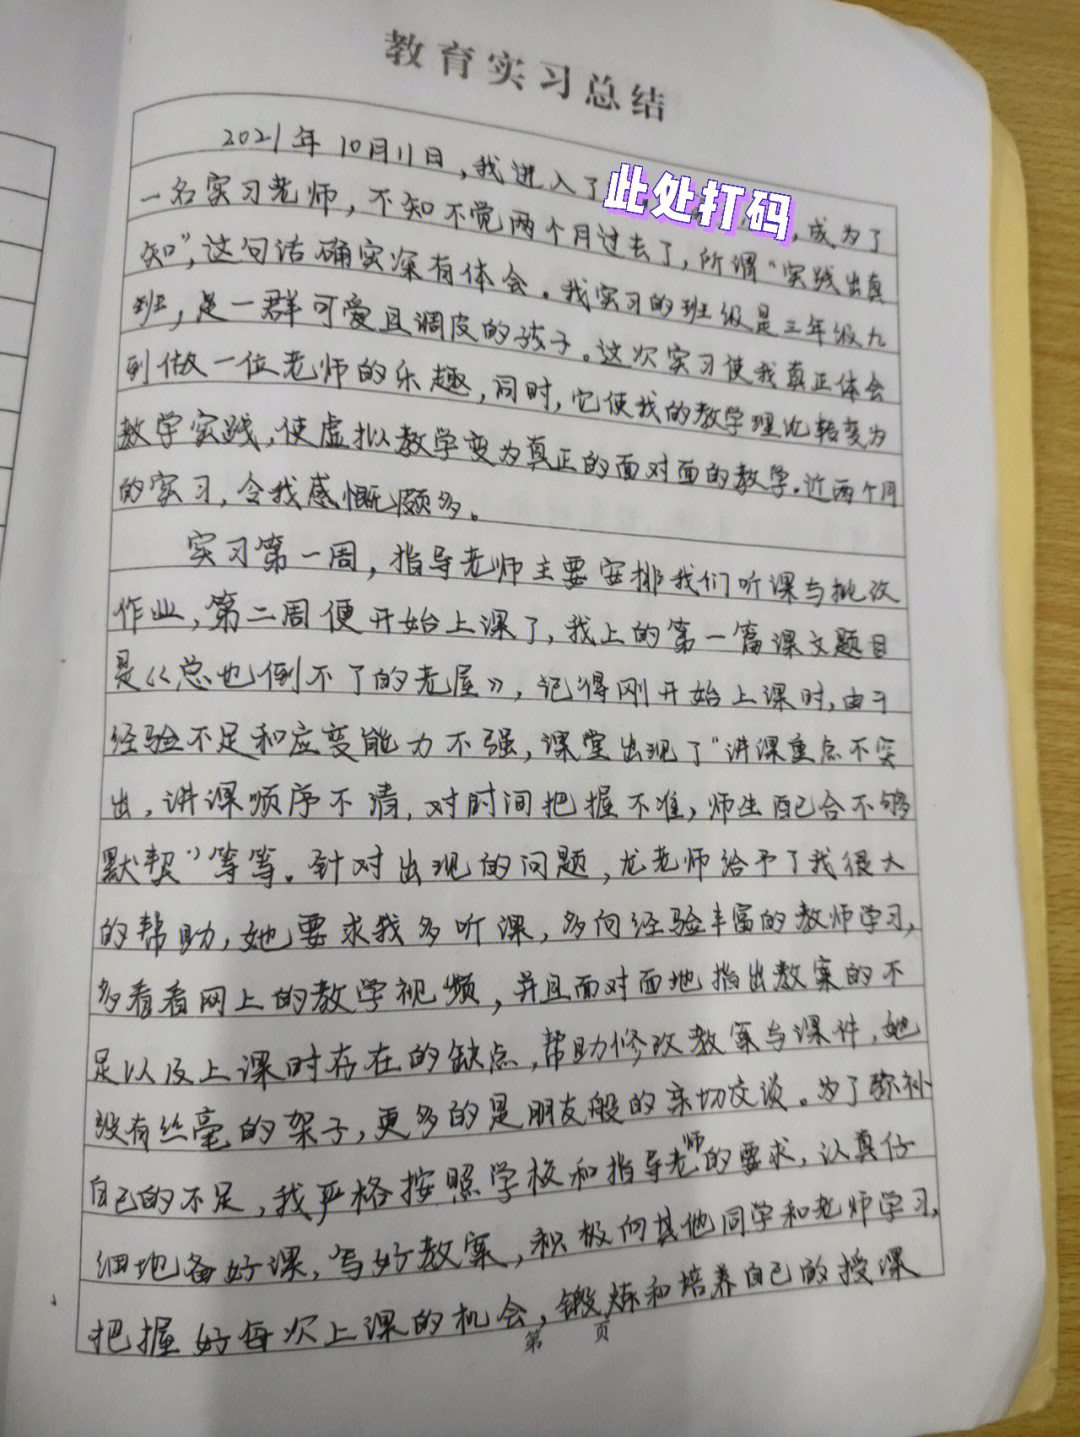 教育实习总结
2021年10月11日,我进入了此处打码,成为了
一名实习老师,不知不觉两个月过去了,所谓“实践出真
知”,这句话确实深有体会。我实习的班级是三年级九
班,是一群可爱且调皮的孩子。这次实习使我真正体会
到做一位老师的乐趣,同时,它使我的教学理论转变为
教学实践,使虚拟教学变为真正的面对面的教学。近两个月
的实习,令我感慨颇多。
实习第一周,指导老师主要安排我们听课与批改
作业,第二周便开始上课了,我上的第一篇课文题目
是《总也倒不了的老屋》,记得刚开始上课时,由于
经验不足和应变能力不强,课堂出现了“讲课重点不突
出,讲课顺序不清,对时间把握不准,师生配合不够
默契”等等。针对出现的问题,龙老师给予了我很大
的帮助,她要求我多听课,多向经验丰富的教师学习,
多看看网上的教学视频,并且面对面地指出教案的不
足以及上课时存在的缺点,帮助修改教案与课件,她
没有丝毫的架子,更多的是朋友般的亲切交谈。为了弥补
自己的不足,我严格按照学校和指导老师的要求,认真仔
细地备好课,写好教案,积极向其他同学和老师学习,
把握好每次上课的机会,锻炼和培养自己的授课
第 页